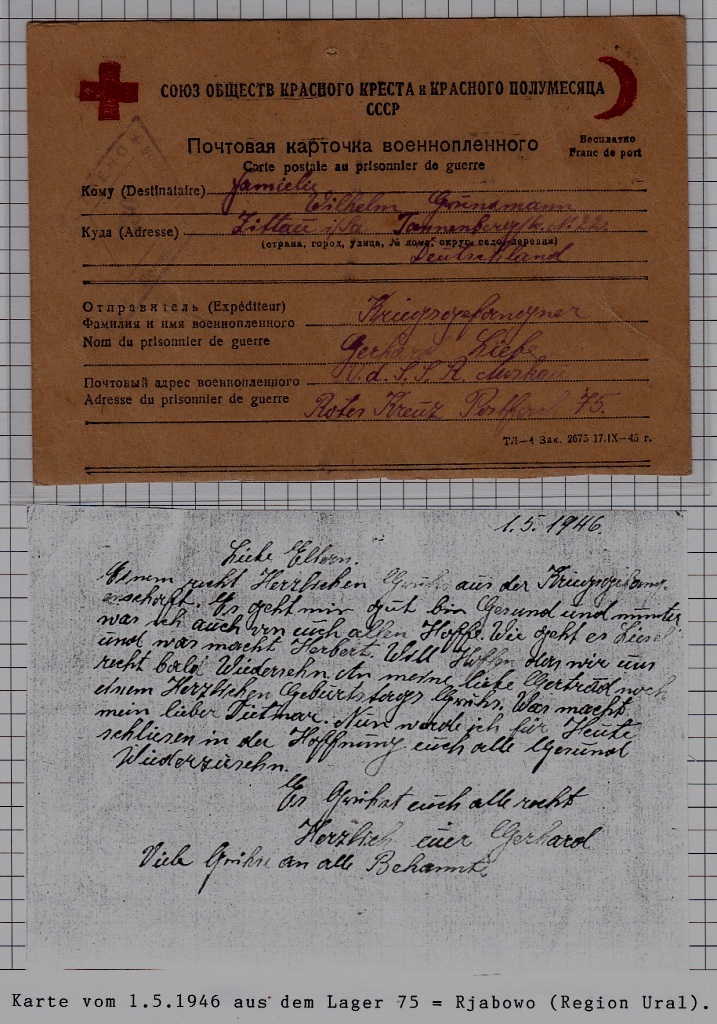 СОЮЗ ОБЩЕСТВ КРАСНОГО КРЕСТА и КРАСНОГО ПОЛУМЕСЯЦА
СССР
Почтовая карточка военнопленного
Carte postale au prisonnier de guerre
Бесплатно
Franc de port
Кому (Destinataire) Familie
Wilhelm Grünsmann
Куда (Adresse) Zittau i/Sa Tannenbergstr. N 22.
(страна, город, улица, № дома, округ, село, деревня)
Deutschland
Отправитель (Expéditeur)
Фамилия и имя военнопленного Kriegsgefangner
Nom du prisonnier de guerre Gerhard Liebe
Почтовый адрес военнопленного U.d.S.S.R. Moskau
Adresse du prisonnier de guerre Rotes Kreuz Postfach 75.
ТЛ—4 Зак. 2675 17.IX—45 г.
1.5.1946.
Liebe Eltern.
Einem recht Herzlichen Gruhs aus der Kriegsgefang-
enschaft. Es geht mir gut bin Gesund und munter
was ich auch von euch allen Hoffe. Wie geht es Liesel
und was macht Herbert. Will Hoffen das wir uns
recht bald Wiedersehn. An meine liebe Gertraud noch
einem Herzlichen Geburtstags Gruhs. Was macht
mein lieber Dietmar. Nun werde ich für Heute
schliesen in der Hoffnung euch alle Gesund
Wiederzusehn.
Es Grühst euch alle recht
Herzlich euer Gerhard
Viele Grühse an alle Bekannte
Karte vom 1.5.1946 aus dem Lager 75 = Rjabowo (Region Ural).